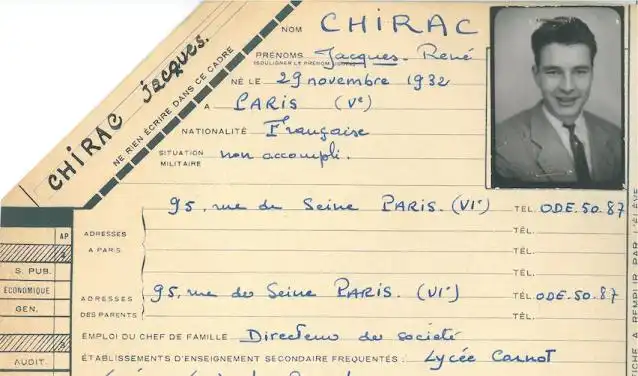 CHIRAC Jacques.
NE RIEN ÉCRIRE DANS CE CADRE
NOM CHIRAC
PRÉNOMS Jacques. René
(SOULIGNER LE PRÉNOM
NÉ LE 29 novembre 1932
A PARIS (Ve)
NATIONALITÉ Française
SITUATION MILITAIRE non accompli.
95, rue de Seine PARIS. (VIe) TÉL. ODE.50.87
ADRESSES A PARIS
TÉL.
TÉL.
TÉL.
ADRESSES DES PARENTS 95, rue de Seine PARIS. (VIe) TÉL. ODE.50.87
TÉL.
EMPLOI DU CHEF DE FAMILLE Directeur de société
ÉTABLISSEMENTS D'ENSEIGNEMENT SECONDAIRE FRÉQUENTÉS : Lycée Carnot
AP
S. PUB.
ECONOMIQUE
GEN.
AUDIT.
FICHE A REMPLIR PAR L'ÉLÈVE